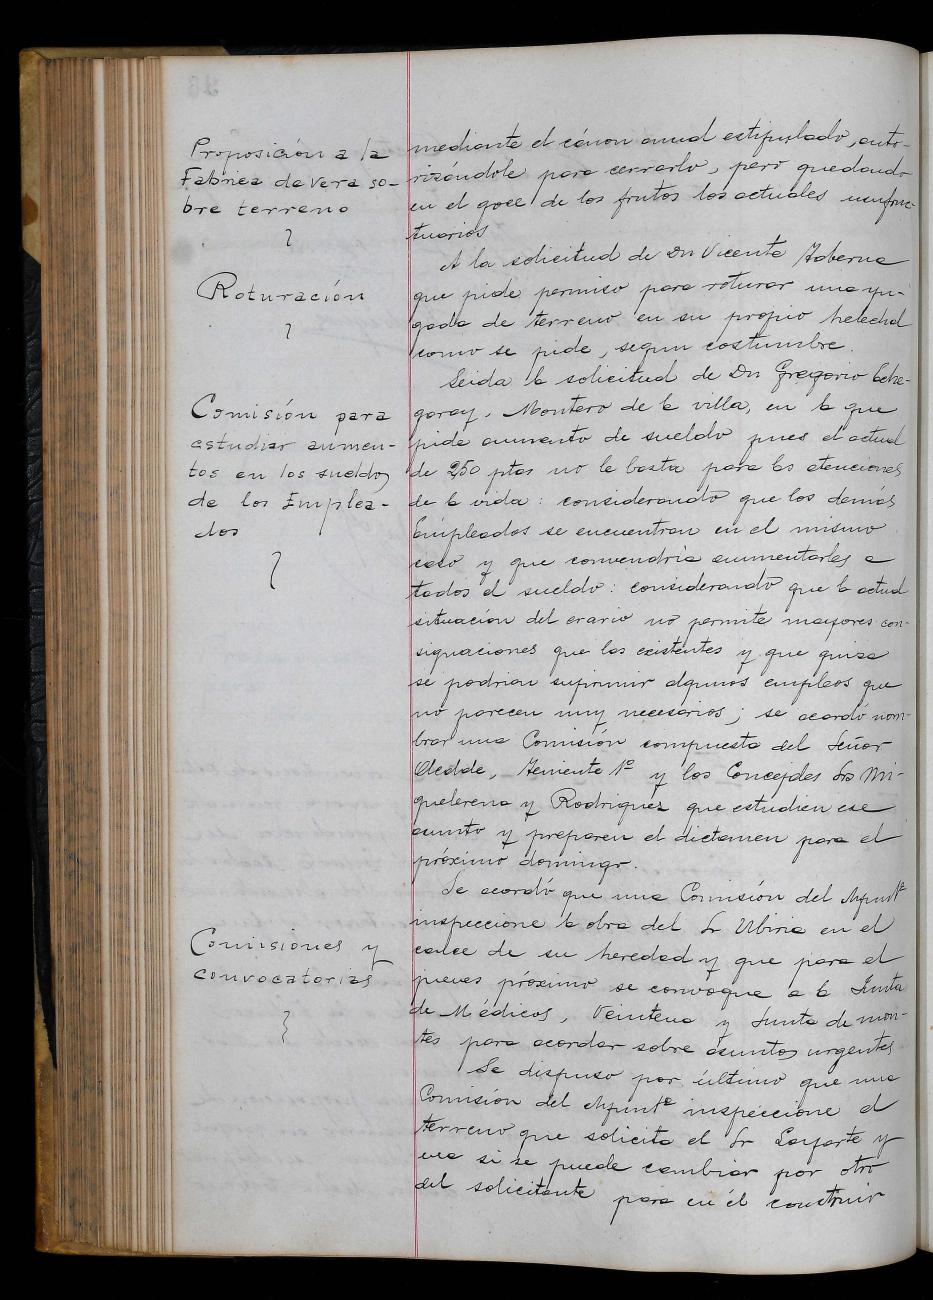 Proposición a la
Fabrica de Vera so-
bre terreno
mediante el cánon anual estipulado, auto-
rizándole para cerrarlo, pero quedando
en el goce de los frutos los actuales usufruc-
tuarios
Roturación
A la solicitud de Dn Vicente Taberna
que pide permiso para roturar una yu-
gada de terreno en su propio helechal
como se pide, segun costumbre.
Comisión para
estudiar aumen-
tos en los sueldos
de los Emplea-
dos
Leida la solicitud de Dn Gregorio Eche-
garay, Montero de la villa, en la que
pide aumento de sueldo pues el actual
de 250 ptas no le basta para las atenciones
de la vida: considerando que los demás
Empleados se encuentran en el mismo
caso y que convendria aumentarles a
todos el sueldo: considerando que la actual
situación del erario no permite mayores con-
signaciones que las existentes y que quiza
se podrian suprimir algunos empleos que
no parecen muy necesarios; se acordó nom-
brar una Comisión compuesta del Señor
Alcalde, Teniente 1º y los Concejales Srs Mi-
quelerena y Rodriguez que estudien ese
asunto y preparen el dictamen para el
próximo domingo.
Comisiones y
convocatorias
Se acordó que una Comisión del Ayuntº
inspeccione la obra del Sr Ubiria en el
calce de su heredad y que para el
jueves próximo se convoque a la Junta
de Médicos, Veintena y Junta de mon-
tes para acordar sobre asuntos urgentes
Se dispuso por último que una
Comisión del Ayuntº inspeccione el
terreno que solicita el Sr Layarte y
vea si se puede cambiar por otro
del solicitante para en él construir